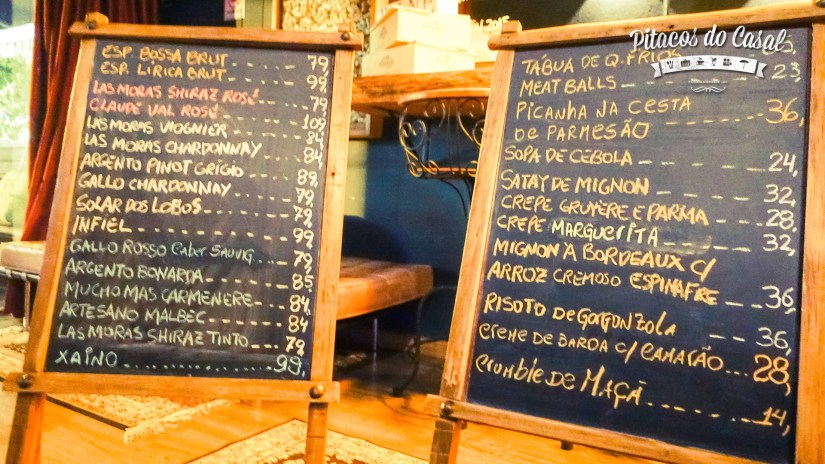 ESP. BOSSA BRUT - - - - 79,
ESP. LÍRICA BRUT - - - - 99,
LAS MORAS SHIRAZ ROSÉ 79
CLAUDE VAL ROSÉ 109
LAS MORAS VIOGNIER - - - - 84
LAS MORAS CHARDONNAY - - - - 84,
ARGENTO PINOT GRIGIO - - - - 89,
GALLO CHARDONNAY - - - - 79,
SOLAR DOS LOBOS - - - - 79,
INFIEL - - - - 99,
GALLO ROSSO Caber SAUVIG . . . . 79,
ARGENTO BONARDA - - - - 85,
MUCHO MAS CARMENERE - - - - 84,
ARTESANO MALBEC - - - - 84
LAS MORAS SHIRAZ TINTO - - - - 79,
XAINO - . . . . . . . 99,
2015
Pitacos do Casal
TÁBUA DE Q. FRIOS
MEAT BALLS - - - - 23,
PICANHA NA CESTA
DE PARMESÃO - - - - 36,
SOPA DE CEBOLA - - - - 24,
SATAY DE MIGNON - - - - 32,
CREPE GRUYÈRE E PARMA - - - - 28,
CREPE MARGUERITA - - - - 32,
MIGNON À BORDEAUX C/
ARROZ CREMOSO ESPINAFRE - - 36,
RISOTO DE GORGONZOLA - - - - 36,
CREME DE BAROA C/ CAMARÃO . . . 28,
CRUMBLE DE MAÇÃ . . . . . . . 14,